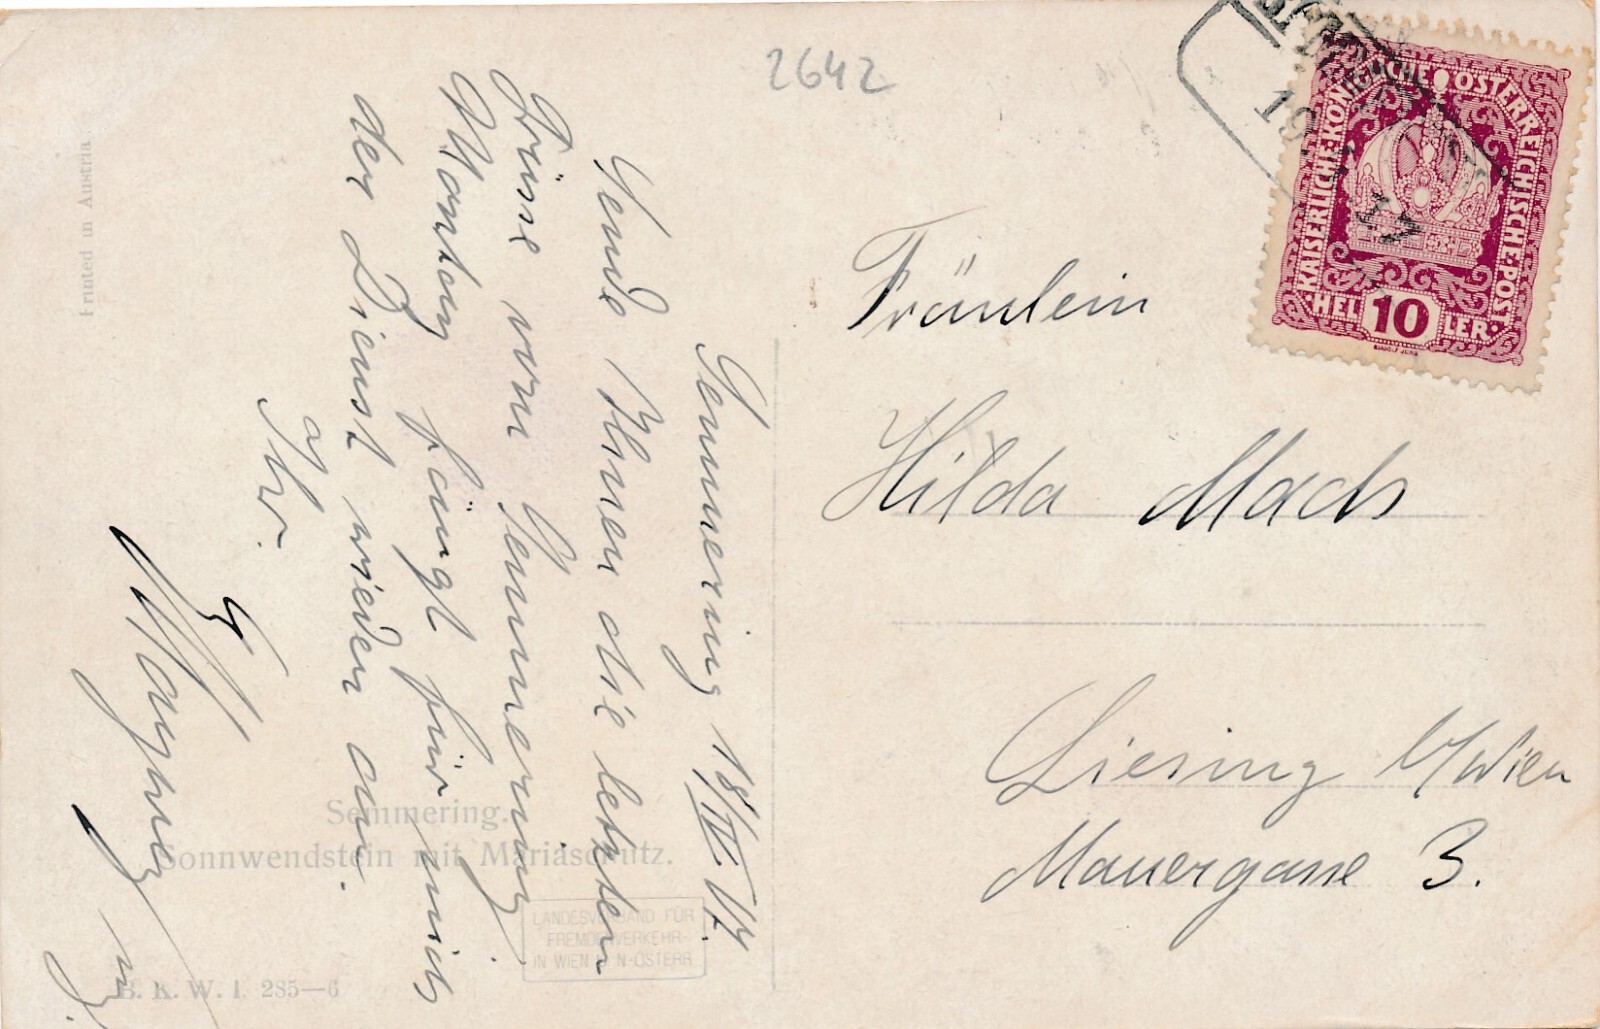 2642
Printed in Austria
Semmering 18/IV. 17.
Sende Ihnen die letzten
Grüsse vom Semmering
Montag fängt für mich
der Dienst wieder an.
Ihr
Semmering.
Sonnwendstein mit Mariaschutz.
LANDESVERBAND FÜR
FREMDENVERKEHR
IN WIEN U. N-ÖSTERR.
B. K. W. I. 285—6
KAISERLICHE·KÖNIGLICHE ÖSTERREICHISCHE·POST·
HELLER
10
19
17
Fräulein
Hilda Mach
Liesing b/Wien
Mauergasse 3.